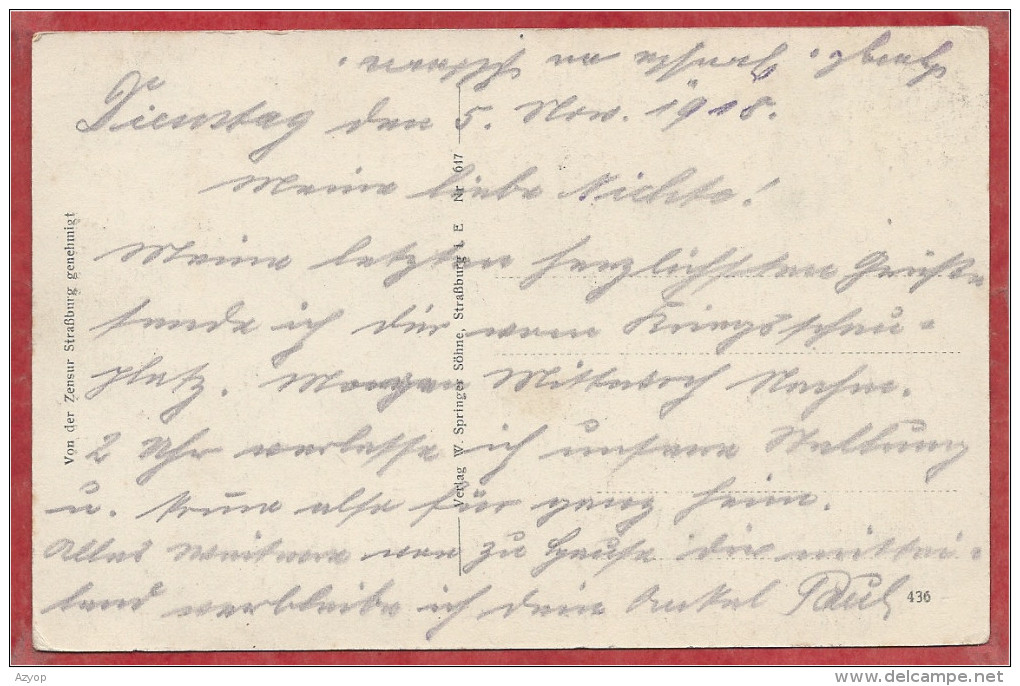 Dienstag den 5. Nov. 1918.
Meine liebe Nichte!
Meine letzten herzlichsten Grüße
sende ich dir vom Kriegsschau-
platz. Morgen Mittwoch Nachm.
2 Uhr verlasse ich unsere Stellung
u. komme also für ganz heim.
Alles Weitere von zu Hause dir mittei-
lend verbleibe ich dein Onkel Paul
Von der Zensur Straßburg genehmigt
Verlag W. Springer Söhne, Straßburg i. E Nr 617
436
Azyop
delcampe.net